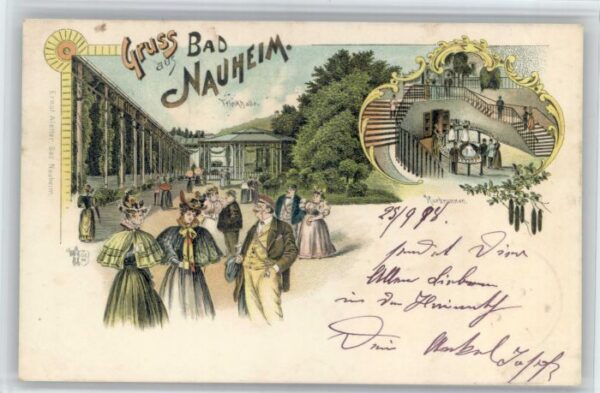 Gruss aus Bad Nauheim.
Trinkhalle.
Kurbrunnen.
Ernst Aletter, Bad Nauheim.
25/9 98.
sendet Dir
Allen Lieben
in der Heimath
Dein Onkel Josef